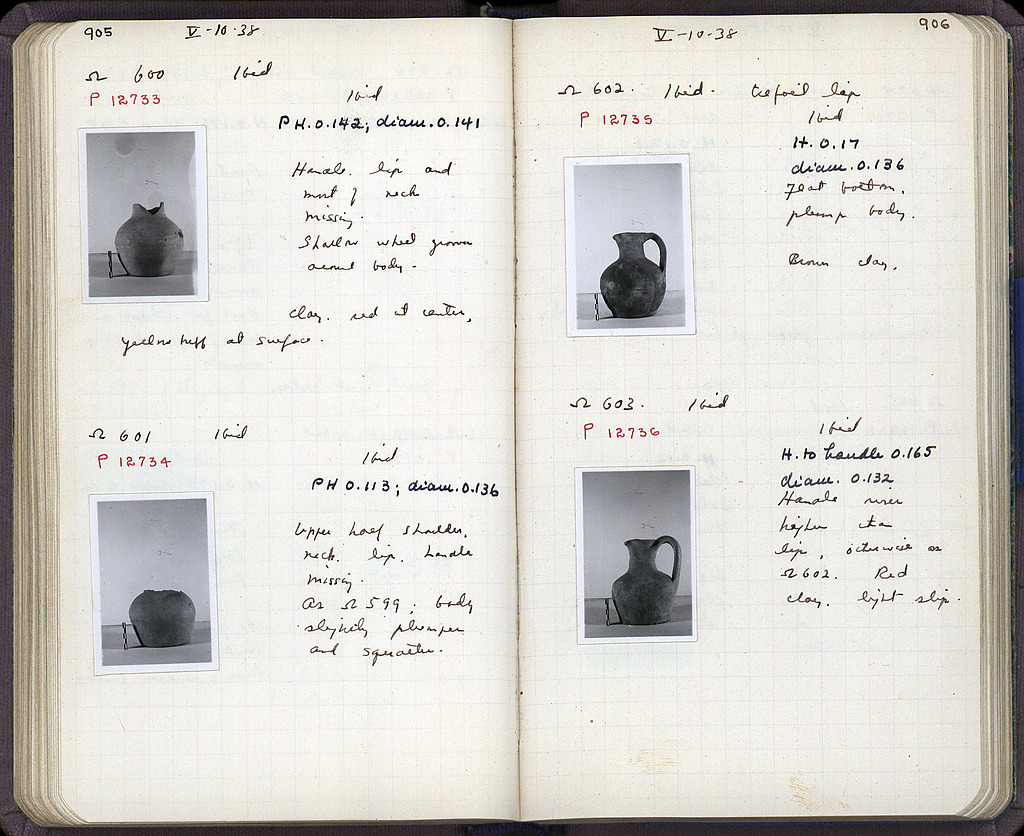 905 V-10-38
Ω 600 Ibid
P 12733
Ibid
PH. 0.142; diam. 0.141
Handle. lip and
most of neck
missing.
Shallow wheel grooves
around body.
Clay. red at center,
yellow buff at surface.
Ω 601 Ibid
P 12734
Ibid
PH 0.113; diam. 0.136
Upper half shoulder,
neck. lip. handle
missing.
As Ω 599; body
slightly plumper
and squatter.
906
V-10-38
Ω 602. Ibid. trefoil lip
P 12735
Ibid
H. 0.17
diam. 0.136
Flat bottom.
plump body.
Brown clay.
Ω 603. Ibid
P 12736
Ibid
H. to handle 0.165
diam. 0.132
Handle rises
higher than
lip, otherwise as
Ω 602. Red
clay. light slip.